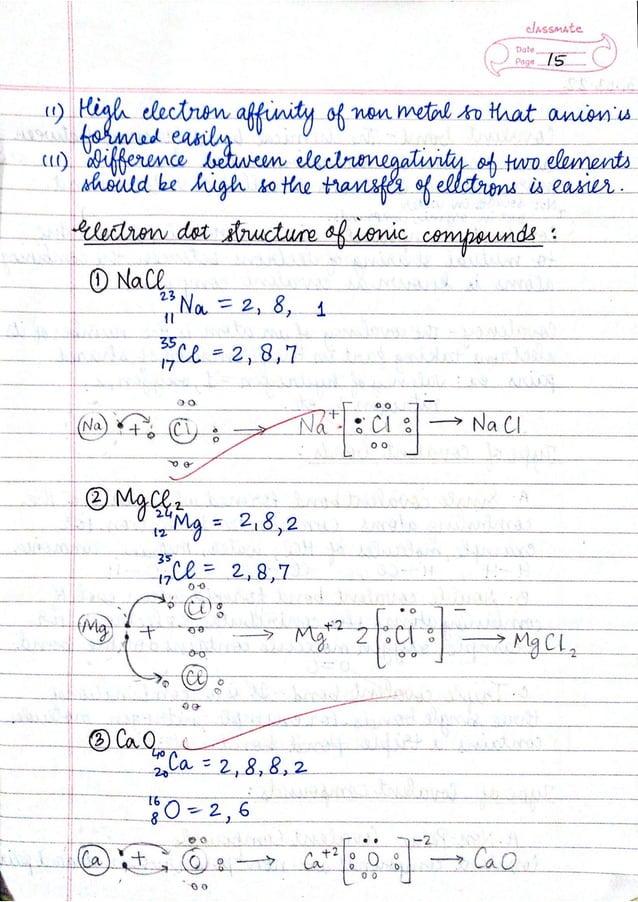 classmate
Date
Page 15
(ii) High electron affinity of non metal so that anion is
formed easily
(iii) Difference between electronegativity of two elements
should be high so the transfer of electrons is easier.
Electron dot structure of ionic compounds :
① NaCl
²³₁₁Na = 2, 8, 1
³⁵₁₇Cl = 2, 8, 7
Na + Cl → Na⁺ [Cl]⁻ → NaCl
② MgCl₂
²⁴₁₂Mg = 2, 8, 2
³⁵₁₇Cl = 2, 8, 7
Cl
Mg + → Mg⁺² 2 [Cl]⁻ → MgCl₂
Cl
③ CaO
⁴⁰₂₀Ca = 2, 8, 8, 2
¹⁶₈O = 2, 6
Ca + O → Ca⁺² [O]⁻² → CaO